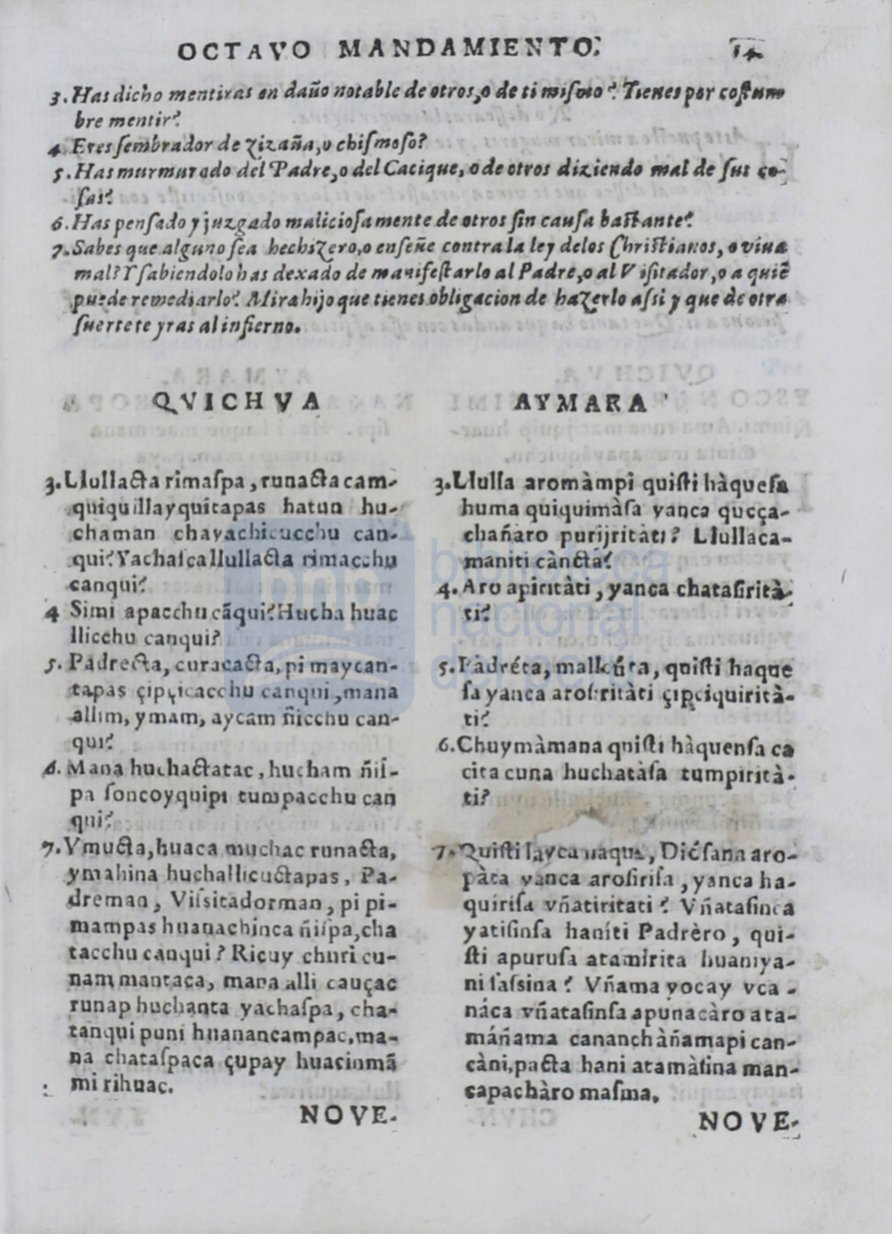 OCTAVO MANDAMIENTO. 14
3. Has dicho mentiras en daño notable de otros, o de ti miſmo? Tienes por coſtum
bre mentir?
4. Eres ſembrador de zizaña, o chiſmoſo?
5. Has murmurado del Padre, o del Cacique, o de otros diziendo mal de ſus co-
ſas?
6. Has penſado y juzgado malicioſamente de otros ſin cauſa baſtante?
7. Sabes que alguno ſea hechizero, o enſeñe contra la ley delos Chriſtianos, o viua
mal? Y ſabiendolo has dexado de manifeſtarlo al Padre, o al Viſitador, o a quiẽ
puede remediarlo? Mira hijo que tienes obligacion de hazerlo aſsi y que de otra
ſuerte te yras al infierno.
QVICHVA
3. Llullacta rimaſpa, runacta cam-
quiquillayquitapas hatun hu-
chaman chayachicucchu can-
qui? Yachaſca llullacta rimacchu
canqui?
4 Simi apacchu cãqui? Hucha huac
llicchu canqui?
5. Padrecta, curacacta, pi maycan-
tapas çipçicacchu canqui, mana
allim, ymam, aycam ñicchu can-
qui?
6. Mana huchactatac, hucham ñiſ-
pa ſoncoyquipi tumpacchu can
qui?
7. Vmucta, huaca muchac runacta,
ymahina huchallicuctapas, Pa-
dreman, Viſsitadorman, pi pi-
mampas huanachinca ñiſpa, cha
tacchu canqui? Ricuy churi cu-
nanmantaca, mana alli cauçac
runap huchanta yachaſpa, cha-
tanqui puni huanancampac, ma-
na chataſpaca çupay huacinmã
mi rihuac.
NOVE-
AYMARA
3. Llulla aromàmpi quiſti hàqueſa
huma quiquimàſa yanca quçça-
chañaro purijritàti? Llullaca-
maniti càncta?
4. Aro apiritàti, yanca chataſirità-
ti?
5. Pàdréta, mallcuta, quiſti haque
ſa yanca aroſiritàti çipciquirità-
ti?
6. Chuymàmana quiſti hàquenſa ca
cita cuna huchatàſa tumpirità-
ti?
7. Quiſti layca haque, Dióſana aro-
pàta yanca aroſiriſa, yanca ha-
quiriſa vñatiritati? Vñataſinca
yatiſinſa haniti Padrèro, qui-
ſti apuruſa atamirita huaniya-
ni ſaſsina? Vñama yocay vca -
náca vñataſinſa apunacàro ata-
máñama cananchàñamapi can-
càni, pacta hani atamàſina man-
capachàro maſma.
NOVE-